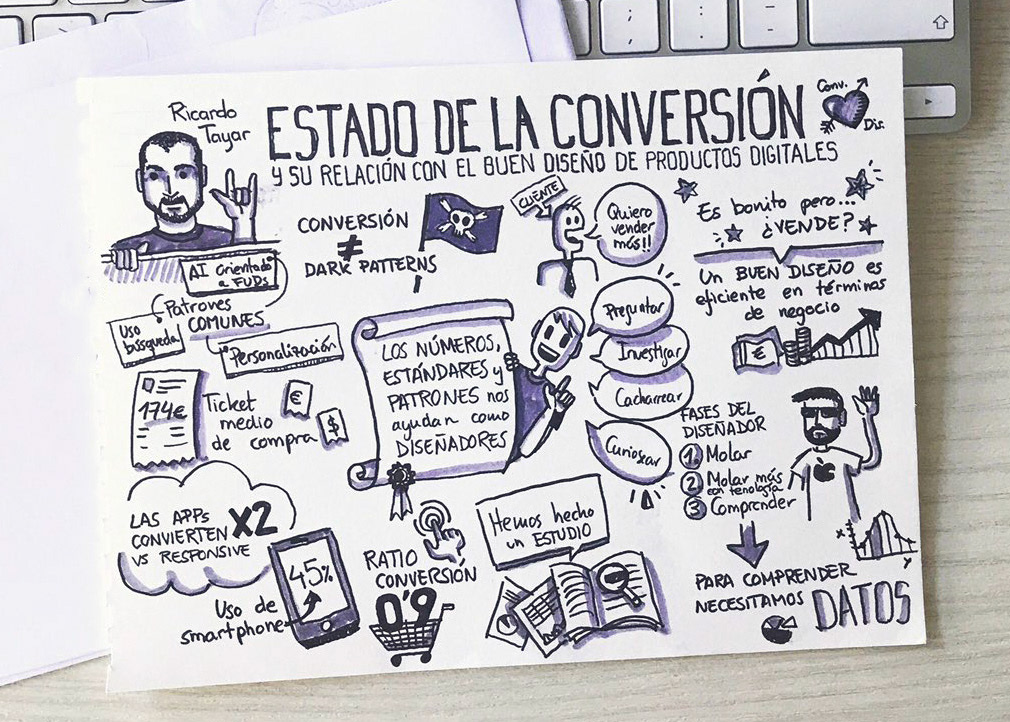 Ricardo
Tayar
ESTADO DE LA CONVERSIÓN
y SU RELACIÓN CON EL BUEN DISEÑO DE PRODUCTOS DIGITALES
Conv.
Dis.
CONVERSIÓN
≠
DARK PATTERNS
CLIENTE
Quiero
vender
más!!
Es bonito pero...
¿VENDE?
Un BUEN DISEÑO es
eficiente en términos
de negocio
€
AI orientada
a FUDs
Patrones
COMUNES
Uso
búsqueda
Personalización
174€
Ticket
medio
de compra
€
$
LOS NÚMEROS,
ESTÁNDARES y
PATRONES nos
ayudan como
DISEÑADORES
Preguntar
Investigar
Cacharrear
Curiosear
FASES DEL
DISEÑADOR
1. Molar
2 Molar más
con tenología
3 Comprender
x
y
PARA COMPRENDER
NECESITAMOS DATOS
LAS APPs
CONVIERTEN X2
VS RESPONSIVE
45%
Uso de
smartphone
RATIO
CONVERSIÓN
0'9
Hemos hecho
un ESTUDIO